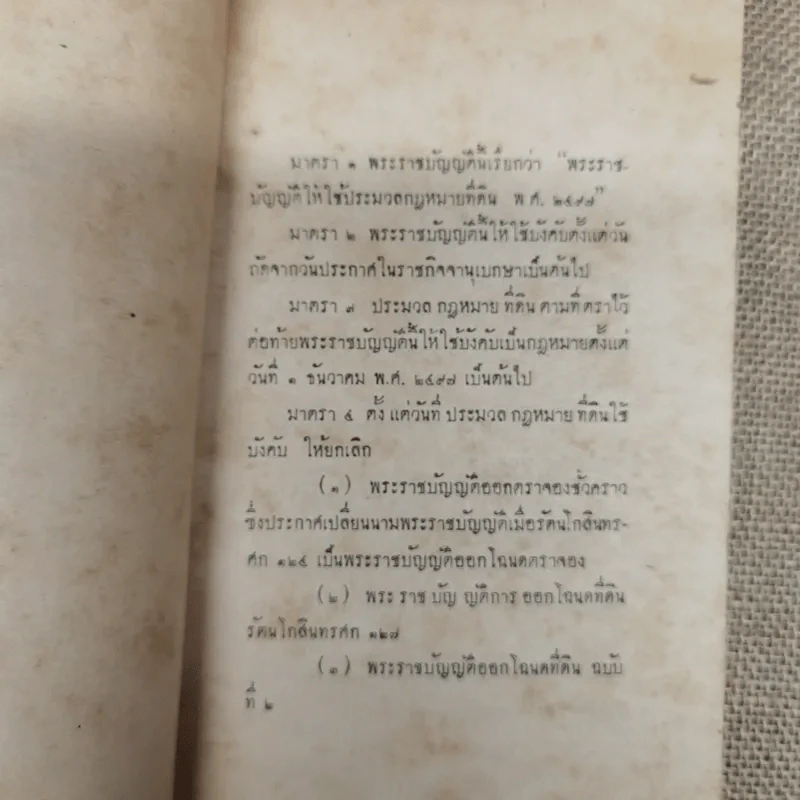 มาตรา ๑ พระราชบัญญัตินี้เรียกว่า “พระราช-
บัญญัติให้ใช้ประมวลกฎหมายที่ดิน พ.ศ. ๒๔๙๗”
มาตรา ๒ พระราชบัญญัตินี้ให้ใช้บังคับตั้งแต่วัน
ถัดจากวันประกาศในราชกิจจานุเบกษาเป็นต้นไป
มาตรา ๓ ประมวล กฎหมาย ที่ดิน ตามที่ ตราไว้
ต่อท้ายพระราชบัญญัตินี้ ให้ใช้บังคับเป็นกฎหมายตั้งแต่
วันที่ ๑ ธันวาคม พ.ศ. ๒๔๙๗ เป็นต้นไป
มาตรา ๔ ตั้ง แต่วันที่ ประมวล กฎหมาย ที่ดินใช้
บังคับ ให้ยกเลิก
(๑) พระราชบัญญัติออกตราจองชั่วคราว
ซึ่งประกาศเปลี่ยนนามพระราชบัญญัติเมื่อรัตนโกสินทร-
ศก ๑๒๔ เป็นพระราชบัญญัติออกโฉนดตราจอง
(๒) พระ ราช บัญ ญัติการ ออกโฉนดที่ดิน
รัตนโกสินทรศก ๑๒๗
(๓) พระราชบัญญัติออกโฉนดที่ดิน ฉบับ
ที่ ๒